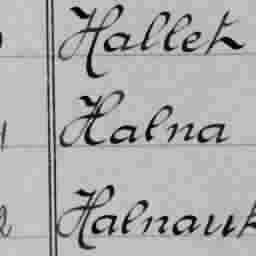 Hallet
Halna
Halnauk